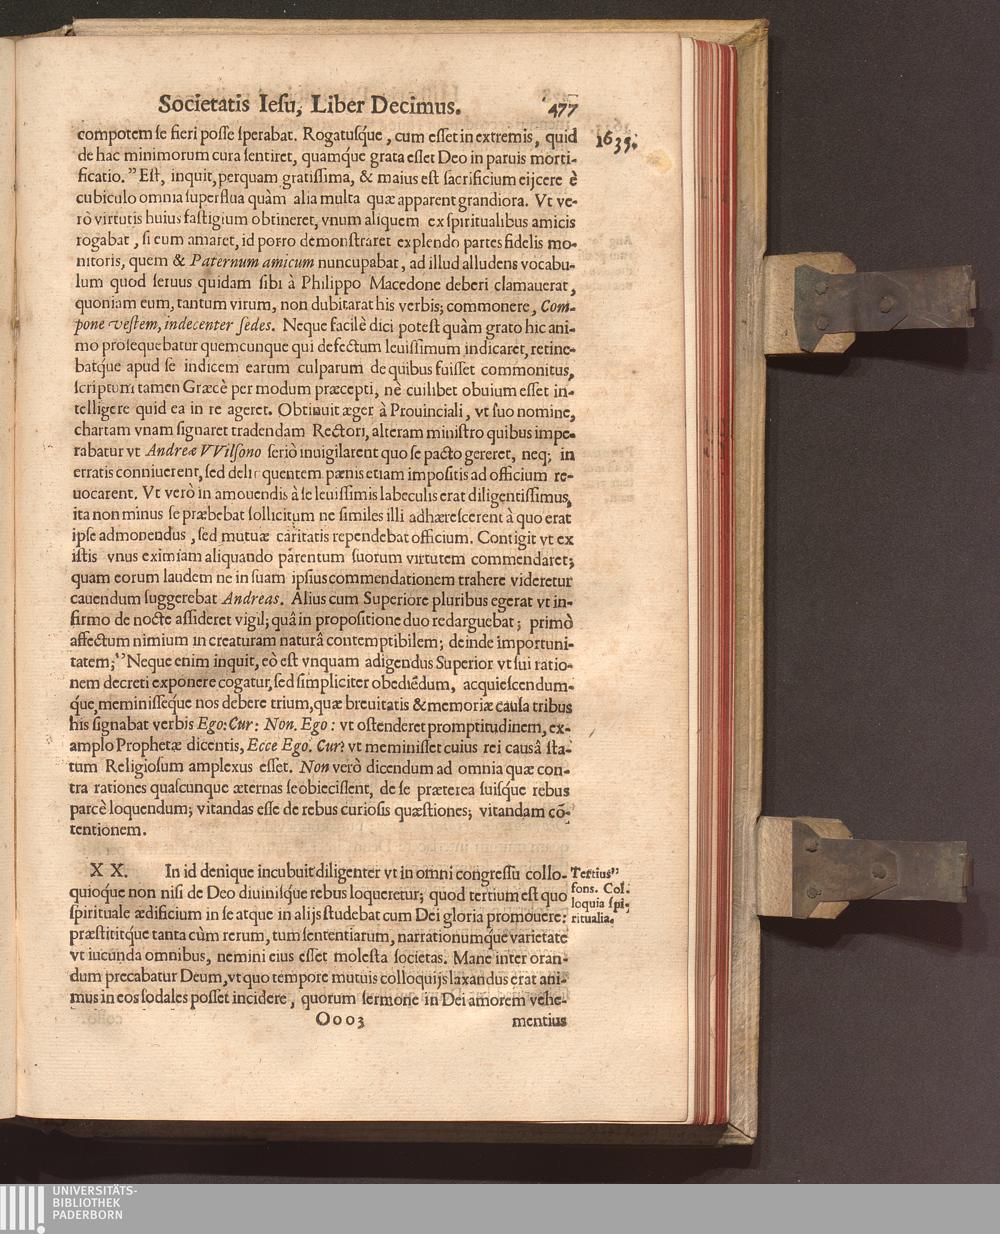 Societatis Iesu, Liber Decimus. 477
1635.
compotem se fieri posse sperabat. Rogatusq́ue, cum esset in extremis, quid
de hac minimorum cura sentiret, quamq́ue grata esset Deo in paruis morti-
ficatio. ”Est, inquit, perquam gratissima, & maius est sacrificium eijcere è
cubiculo omnia superflua quàm alia multa quæ apparent grandiora. Vt ve-
rò virtutis huius fastigium obtineret, vnum aliquem ex spiritualibus amicis
rogabat, si eum amaret, id porro demonstraret explendo partes fidelis mo-
nitoris, quem & Paternum amicum nuncupabat, ad illud alludens vocabu-
lum quod seruus quidam sibi à Philippo Macedone deberi clamauerat,
quoniam eum, tantum virum, non dubitarat his verbis; commonere, Com-
pone vestem, indecenter sedes. Neque facilè dici potest quàm grato hic ani-
mo prosequebatur quemcunque qui defectum leuissimum indicaret, retine-
batq́ue apud se indicem earum culparum de quibus fuisset commonitus,
scriptum tamen Græcè per modum præcepti, nè cuilibet obuium esset in-
telligere quid ea in re ageret. Obtinuit æger à Prouinciali, vt suo nomine,
chartam vnam signaret tradendam Rectori, alteram ministro quibus impe-
rabatur vt Andreæ VVilsono seriò inuigilarent quo se pacto gereret, neq; in
erratis conniuerent, sed delinquentem pænis etiam impositis ad officium re-
uocarent. Vt verò in amouendis à se leuissimis labeculis erat diligentissimus,
ita non minus se præbebat sollicitum ne similes illi adhærescerent à quo erat
ipse admonendus, sed mutuæ caritatis rependebat officium. Contigit vt ex
istis vnus eximiam aliquando parentum suorum virtutem commendaret;
quam eorum laudem ne in suam ipsius commendationem trahere videretur
cauendum suggerebat Andreas. Alius cum Superiore pluribus egerat vt in-
firmo de nocte assideret vigil; quâ in propositione duo redarguebat; primò
affectum nimium in creaturam naturâ contemptibilem; deinde importuni-
tatem; ”Neque enim inquit, eò est vnquam adigendus Superior vt sui ratio-
nem decreti exponere cogatur, sed simpliciter obediẽdum, acquiescendum-
q́ue, meminisseq́ue nos debere trium, quæ breuitatis & memoriæ causa tribus
his signabat verbis Ego: Cur: Non. Ego: vt ostenderet promptitudinem, ex-
amplo Prophetæ dicentis, Ecce Ego. Cur? vt meminisset cuius rei causâ sta-
tum Religiosum amplexus esset. Non verò dicendum ad omnia quæ con-
tra rationes quascunque æternas se obiecissent, de se præterea suisq́ue rebus
parcè loquendum; vitandas esse de rebus curiosis quæstiones; vitandam cõ-
tentionem.
XX. In id denique incubuit diligenter vt in omni congressu collo-
quioque non nisi de Deo diuinisq́ue rebus loqueretur; quod tertium est quo
spirituale ædificium in se atque in alijs studebat cum Dei gloria promouere:
præstititq́ue tanta cùm rerum, tum sententiarum, narrationumq́ue varietate
vt iucunda omnibus, nemini eius esset molesta societas. Mane inter oran-
dum precabatur Deum, vt quo tempore mutuis colloquijs laxandus erat ani-
mus in eos sodales posset incidere, quorum sermone in Dei amorem vehe-
Tertius”
fons. Col-
loquia spi-
ritualia.
Ooo3 mentius
UNIVERSITÄTS-
BIBLIOTHEK
PADERBORN